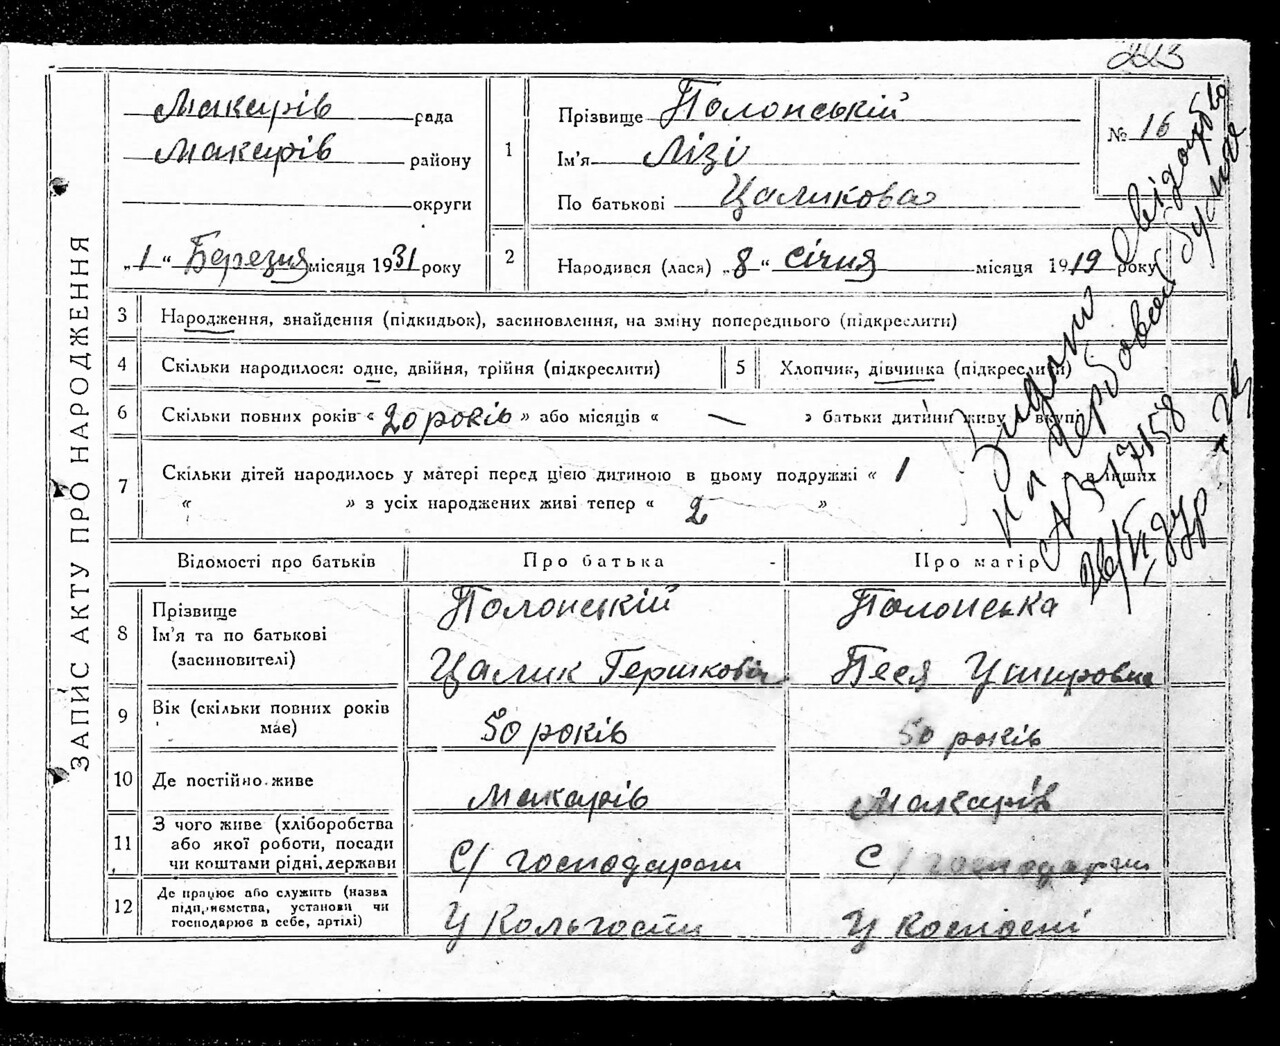 223
ЗАПИС АКТУ ПРО НАРОДЖЕННЯ
Макарів рада
Макарів району
округи
„1“ Березня місяця 1931 року
1
Прізвище Полонській
Ім'я Лізі
По батькові Цаликова
№ 16
2
Народився (лася) „8“ січня місяця 1919 року
3 Народження, знайдення (підкидьок), засиновлення, на зміну попереднього (підкреслити)
4 Скільки народилося: одне, двійня, трійня (підкреслити)
5 Хлопчик, дівчинка (підкреслити)
6 Скільки повних років «20 років» або місяців « — » батьки дитини живуть вкупі
7 Скільки дітей народилось у матері перед цією дитиною в цьому подружжі « 1 в інших
« » з усіх народжених живі тепер « 2 »
Відомості про батьків Про батька Про матір
8 Прізвище
Ім'я та по батькові
(засиновителі)
Полонцкій
Цалик Гершковіч
Полонська
Песя Ушировна
9 Вік (скільки повних років
має)
50 років
50 років
10 Де постійно живе Макарів Макарів
11 З чого живе (хліборобства
або якої роботи, посади
чи коштами рідні, держави
С/ господарати
С/ господарати
12 Де працює або служить (назва
підприємства, установи чи
господарює в себе, артілі)
У Кольгости
У
Видано
свідоцтво
на гербовой бумаге
№ 517158
26/VI